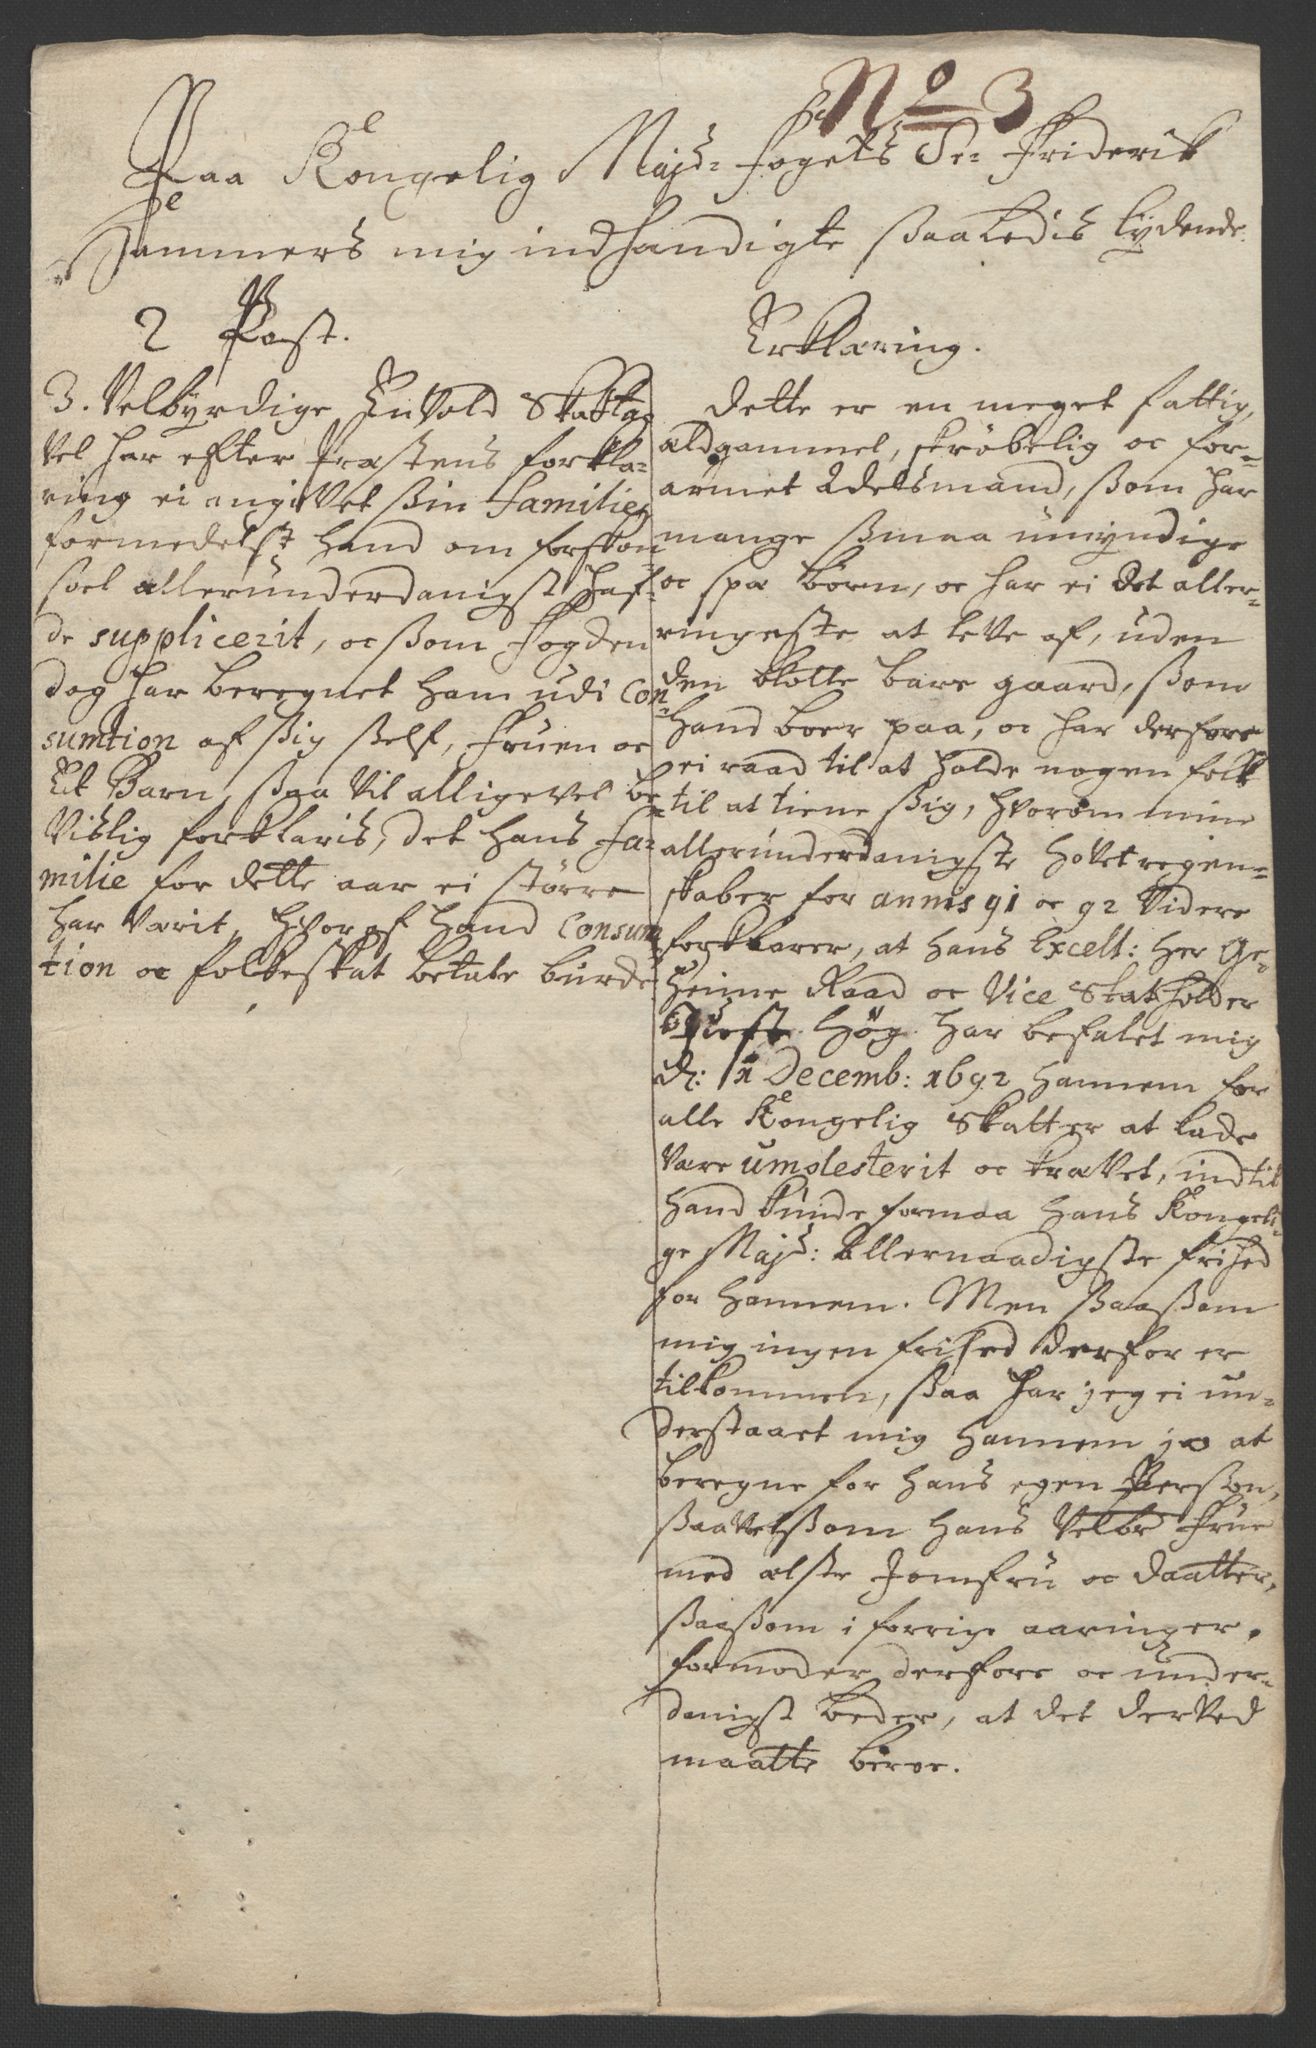 No 3
Paa Kongelig Majds fogets Sr Friderik
Hammers mig indhandigte ßaaledis lydende
2 Post.
3. Velbyrdige Envold Skaktav
vel har efter Præstens forkla-
ring ei angivet ßin Familie,
formedelst hand om forskon-
sel allerunderdanigst haf-
de supplicerit, oc ßom fogden
dog har beregnet ham udi Con-
sumtion af ßig ßelf, Fruen oc
Et Barn, ßaa vil alligevel be-
vislig forklaris, det hans Fa-
milie for dette aar ei større
har værit, hvoraf hand Consum
tion oc folkeskat betale burde
Erklæring.
Dette er en meget fattig,
ældgammel, skrøbelig oc for-
armet Adelsmand, ßom har
mange ßmaa umyndige
oc spæ børn, oc har ei det aller-
ringeste at leve af, uden
den blotte bare gaard, ßom
hand boer paa, oc har derfore
ei raad til at holde nogen folk
til at tiene ßig, hvorom mine
allerunderdanigste hovetregen-
skaber for annis 91 oc 92 videre
forklarer, at hans Excell: Her Ge-
heime Raad oc Vice Statholder
Høg har befalet mig
d: 1 Decemb: 1692 hannem for
alle Kongelig Skatter at lade
være umolesterit oc kræVet, indtil
hand kunde formaa hans Kongeli-
ge Majds: Allernaadigste frihed
for hannem. Men ßaaßom
mig ingen frihed derfor er
tilkommen, ßaa har jeg ei un-
derstaaet mig hannem jo at
beregne for hans egen Perßon,
ßaavelßom hans Velbr Frue
med ælste Jomfru oc Daatter,
ßaaßom i forrige aaringer.
formoder derfore oc under-
danigst beder, at det derved
maatte beroe.